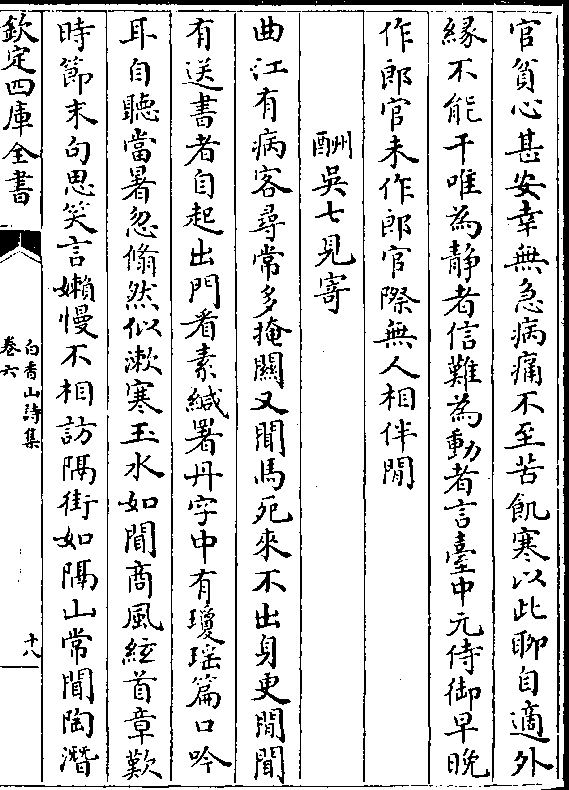 官貧心甚安幸無急病痛不至苦飢寒以此聊自適外
緣不能干唯為靜者信難為動者言臺中元侍御早晚
作郎官未作郎官際無人相伴閒
酬吳七見寄
曲江有病客尋常多掩關又聞馬死來不出身更閒聞
有送書者自起出門看素緘署丹字中有瓊瑤篇口吟
耳自聽當暑忽翛然似漱寒玉水如聞商風絃首章歎
時節末句思笑言嬾慢不相訪隔街如隔山常聞陶潛
欽定四庫全書
白香山詩集
卷六
十八